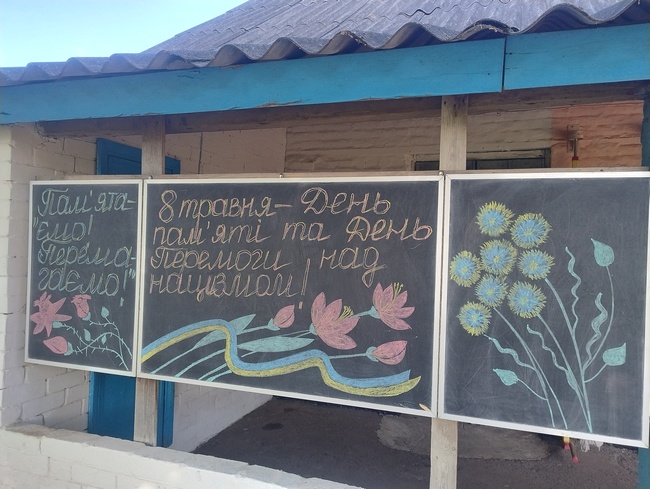 Пам'ята-
"ємо!
Перема-
гаємо!"
8 травня - День
пам'яті та День
Перемоги над
нацизмом!